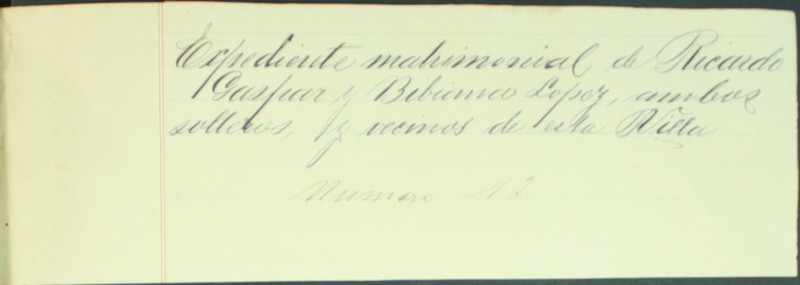 Expediente matrimonial de Ricardo
Gaspar y Bibiana Lopez, ambos
solteros, y vecinos de esta Villa
Numero 12